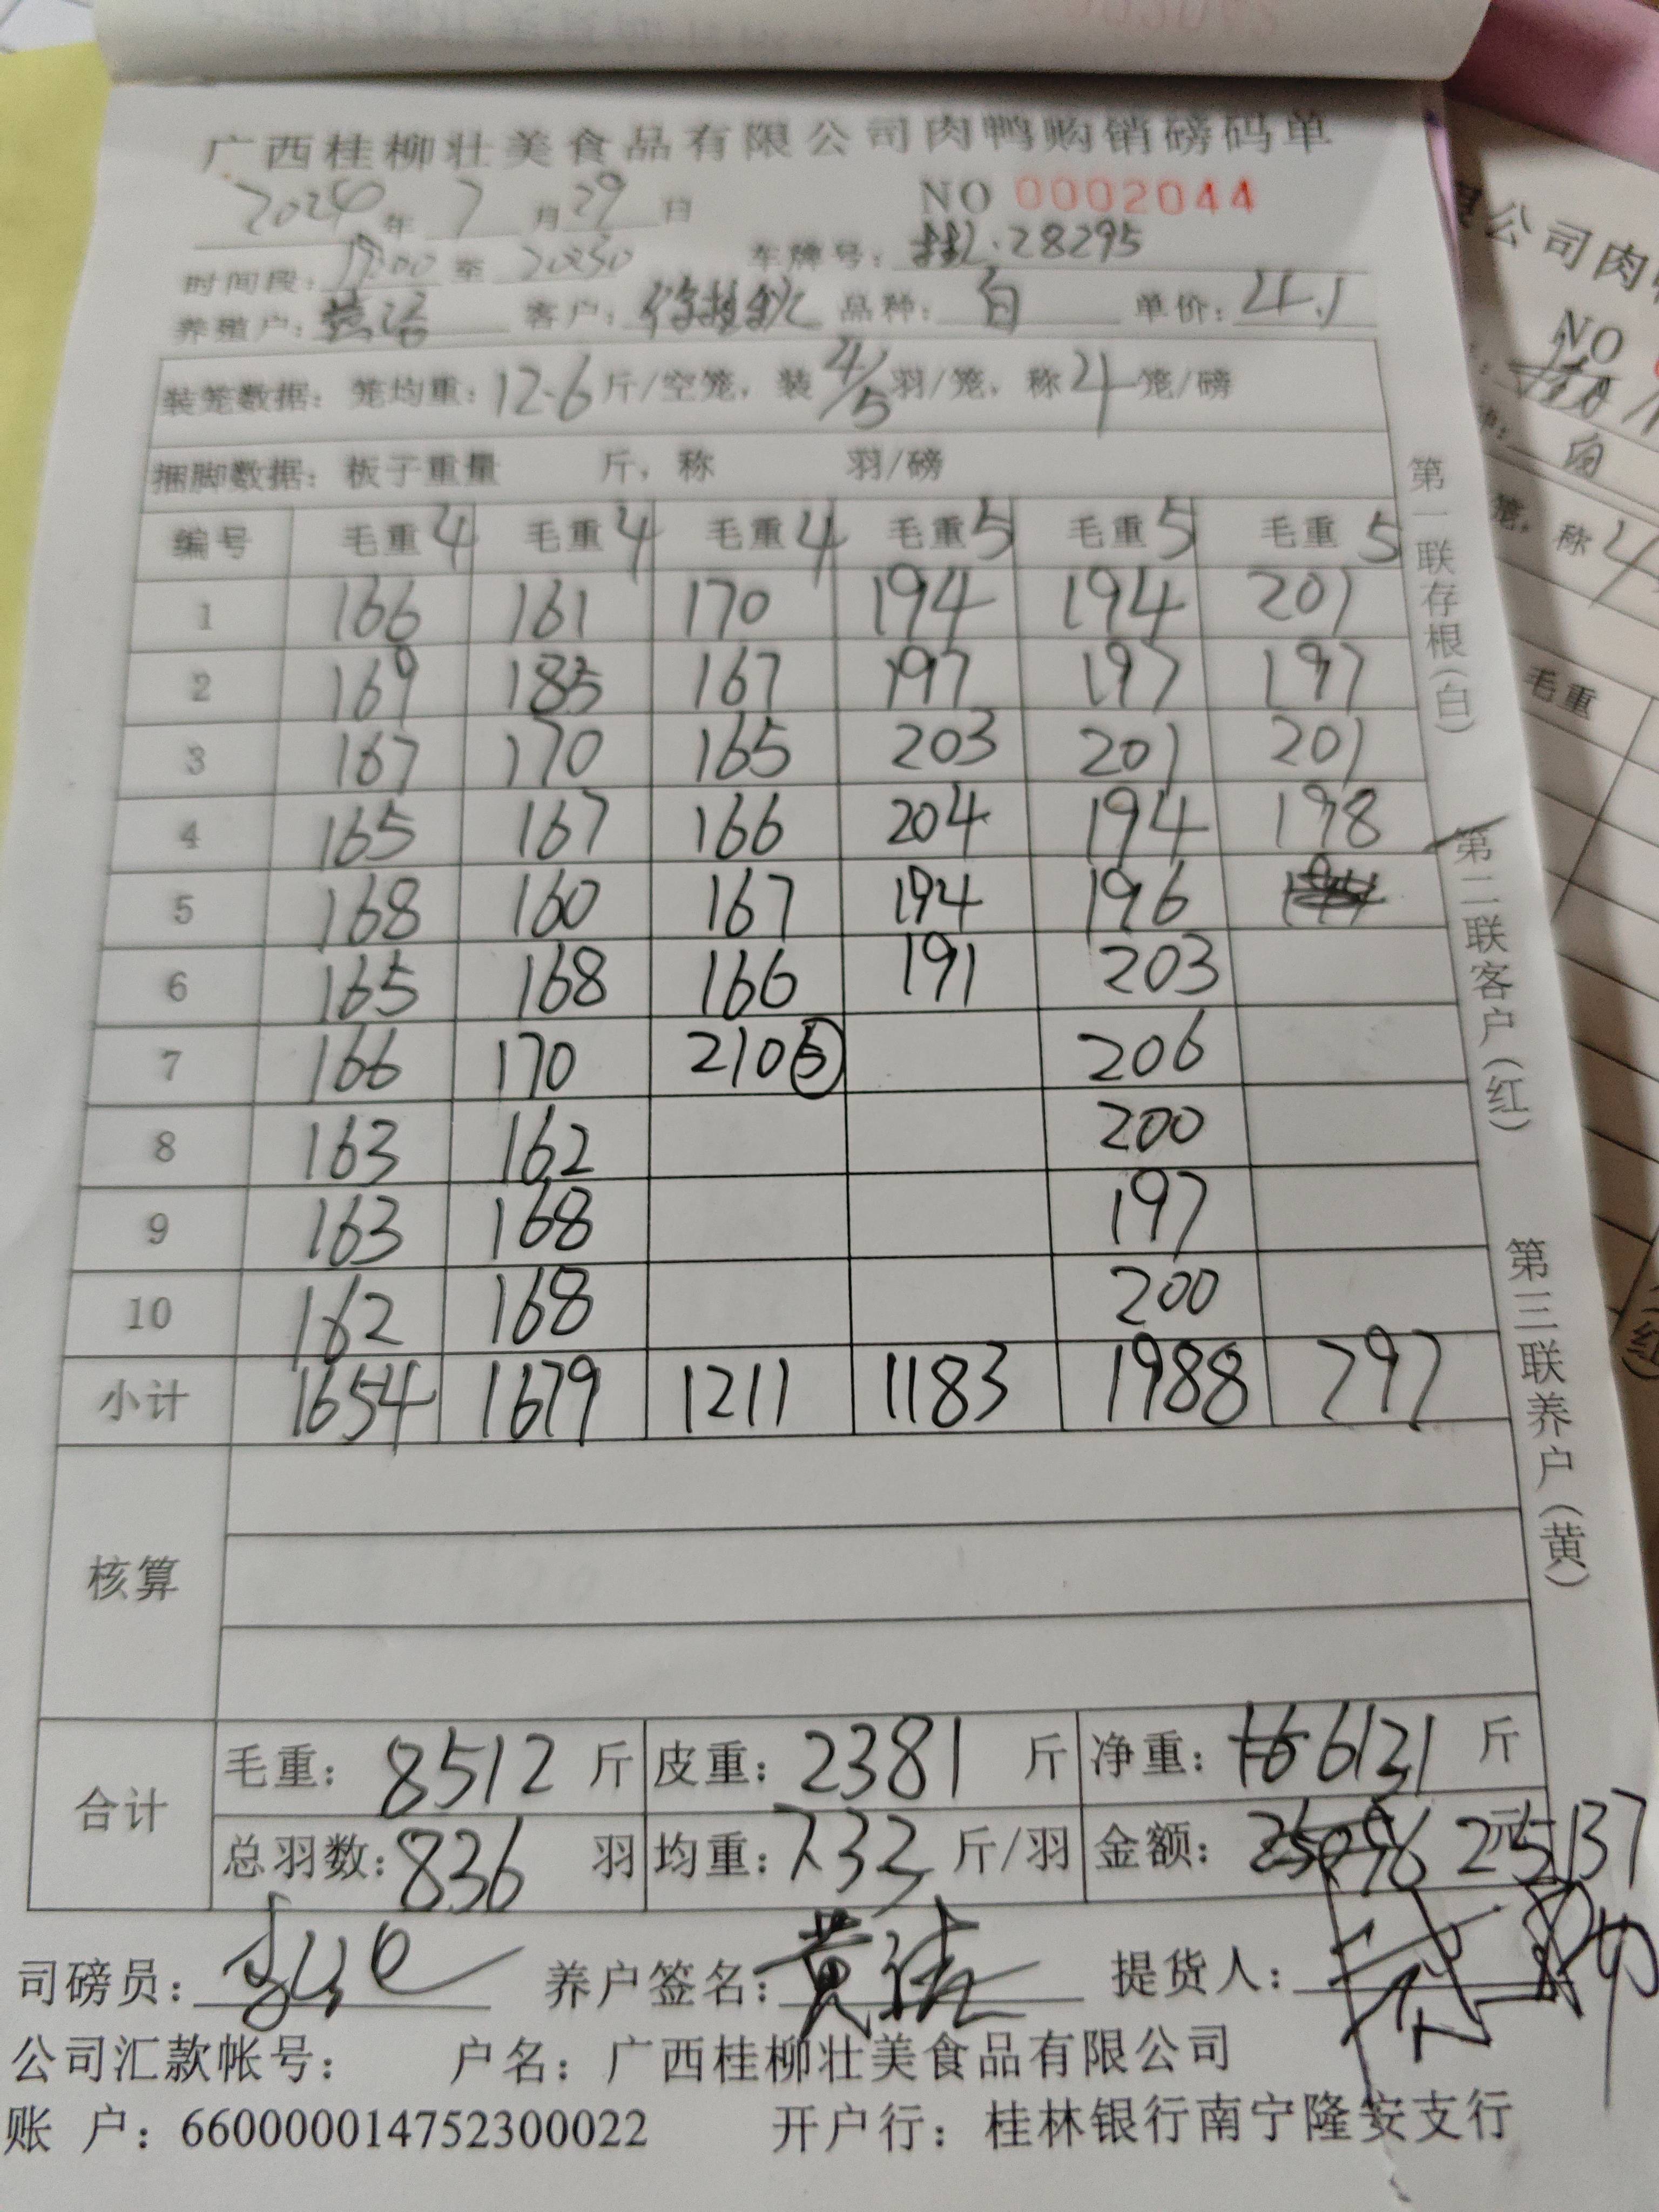 广西桂柳壮美食品有限公司肉鸭购销磅码单
2024年 7月29日 NO 0002044
时间段： 至 20:30 车牌号： 28295
养殖户： 客户： 品种：白 单价：4.1
装笼数据：笼均重：12.6斤/空笼，装4/5羽/笼，称4笼/磅
捆脚数据：板子重量 斤，称 羽/磅
编号 毛重4 毛重4 毛重4 毛重5 毛重5 毛重5
1 166 161 170 194 194 201
2 169 185 167 197 197 197
3 167 170 165 203 201 201
4 165 167 166 204 194 198
5 168 160 167 194 196
6 165 168 166 191 203
7 166 170 210⑤ 206
8 163 162 200
9 163 168 197
10 162 168 200
小计 1654 1679 1211 1183 1988 797
核算
合计 毛重：8512斤 皮重：2381斤 净重：6131斤
总羽数：836羽 均重：7.33斤/羽 金额：25137元
司磅员： 养户签名：黄洁 提货人：
公司汇款帐号： 户名：广西桂柳壮美食品有限公司
账 户：660000014752300022 开户行：桂林银行南宁隆安支行
第一联存根(白)
第二联客户(红)
第三联养户(黄)
公司肉
NO
白
笼，称4
毛重